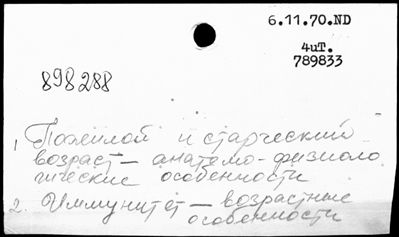 6.11.70.ND
4иТ.
789833
898288
1 Пожилой и старческий
возраст — анатомо-физиоло
гические особенности
2. Иммунитет — возрастные
особенности